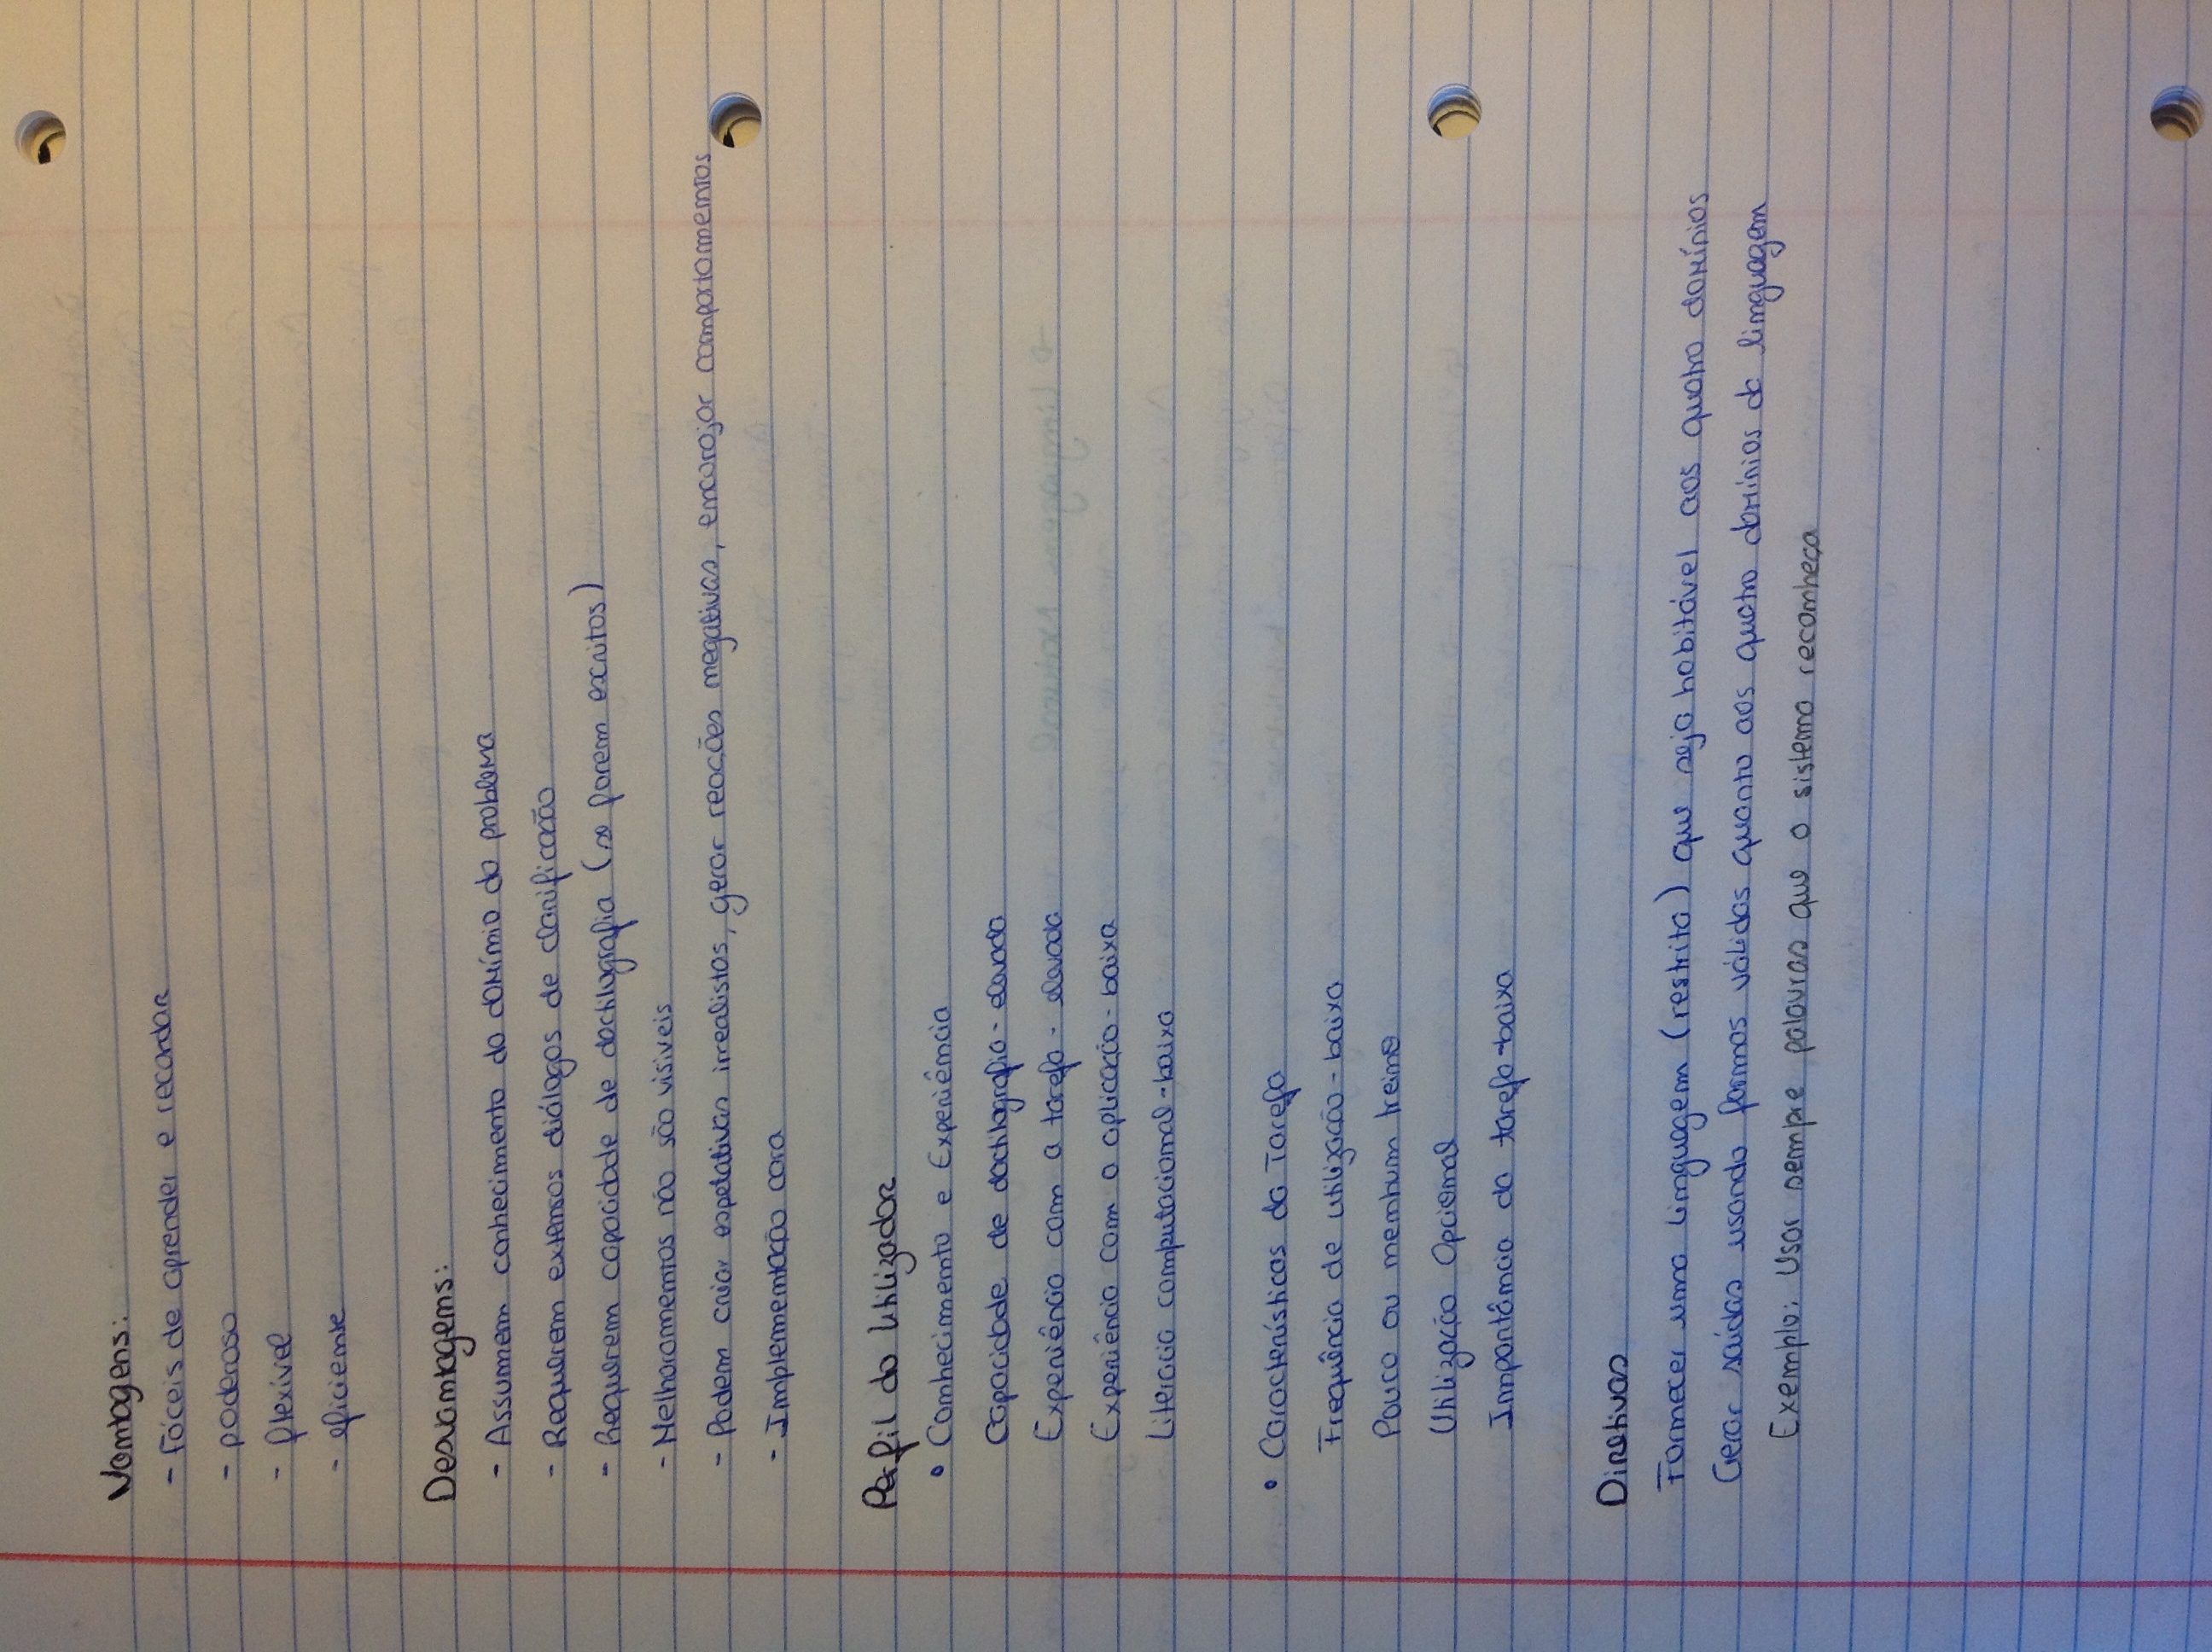 Vantagens:
- Fáceis de aprender e recordar
- poderoso
- flexível
- eficiente
Desvantagens:
- Assumem conhecimento do domínio do problema
- Requerem extensos diálogos de clarificação
- Requerem capacidade de dactilografia (se forem escritos)
- Melhoramentos não são visíveis
- Podem criar espetativas irrealistas, gerar reações negativas, encorajar comportamentos
- Implementação cara
Perfil do Utilizador
• Conhecimento e Experiência
Capacidade de dactilografia - elevada
Experiência com a tarefa - elevada
Experiência com a aplicação - baixa
Literacia computacional - baixa
• Características da Tarefa
Frequência de utilização - baixa
Pouco ou nenhum treino
Utilização Opcional
Importância da tarefa - baixa
Diretivas
Fornecer uma linguagem (restrita) que seja habitável aos quatro domínios
Gerar saídas usando formas válidas quanto aos quatro domínios de linguagem
Exemplo: Usar sempre palavras que o sistema reconheça